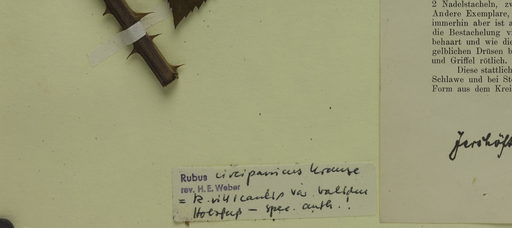 2 Nadelstacheln, zw
Andere Exemplare,
immerhin aber ist a
die Bestachelung v
behaart und wie die
gelblichen Drüsen b
und Griffel rötlich.
Diese stattlich
Schlawe und bei St
Form aus dem Krei
Rubus circipanicus Krause
rev. H. E. Weber
= R. villicaulis var.
Holzfuß – spec. auth.!